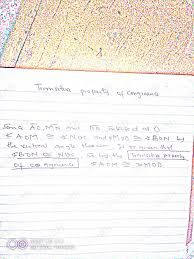 Transitive property of congruence
Since AC, MN and BD intersect at O
∢AOM ≅ ∢NOC and ∢MOD ≅ ∢BON by
the vertical angle theorem. It is given that
∢BON ≅ NOC by the Transitive property
of congruence ∢AOM ≅ ∢MOD